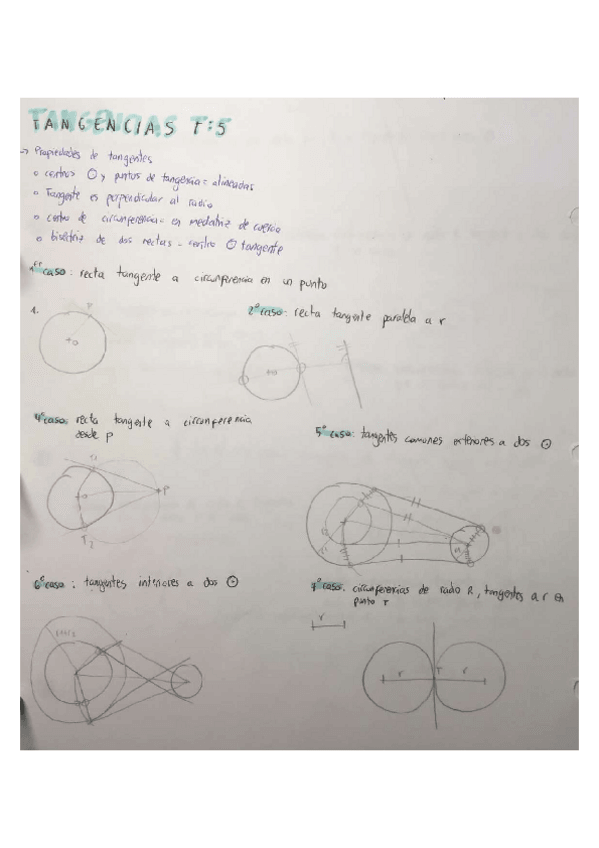 TANGENCIAS T:5
→ Propiedades de tangentes
o centros O y puntos de tangencia = alineadas
o Tangente es perpendicular al radio
o centro de circunferencia = en mediatriz de cuerda
o bisetriz de dos rectas - centro O tangente
1er caso: recta tangente a circunferencia en un punto
1.
2º caso: recta tangente paralela a r
P
+o
+o
4º caso: recta tangente a circunferencia
desde P
5º caso: tangentes comunes exteriores a dos ⊙
T1
+o
P
T2
6º caso: tangentes interiores a dos ⊙
7º caso: circunferencias de radio R, tangentes a r en
punto T
r
r T r